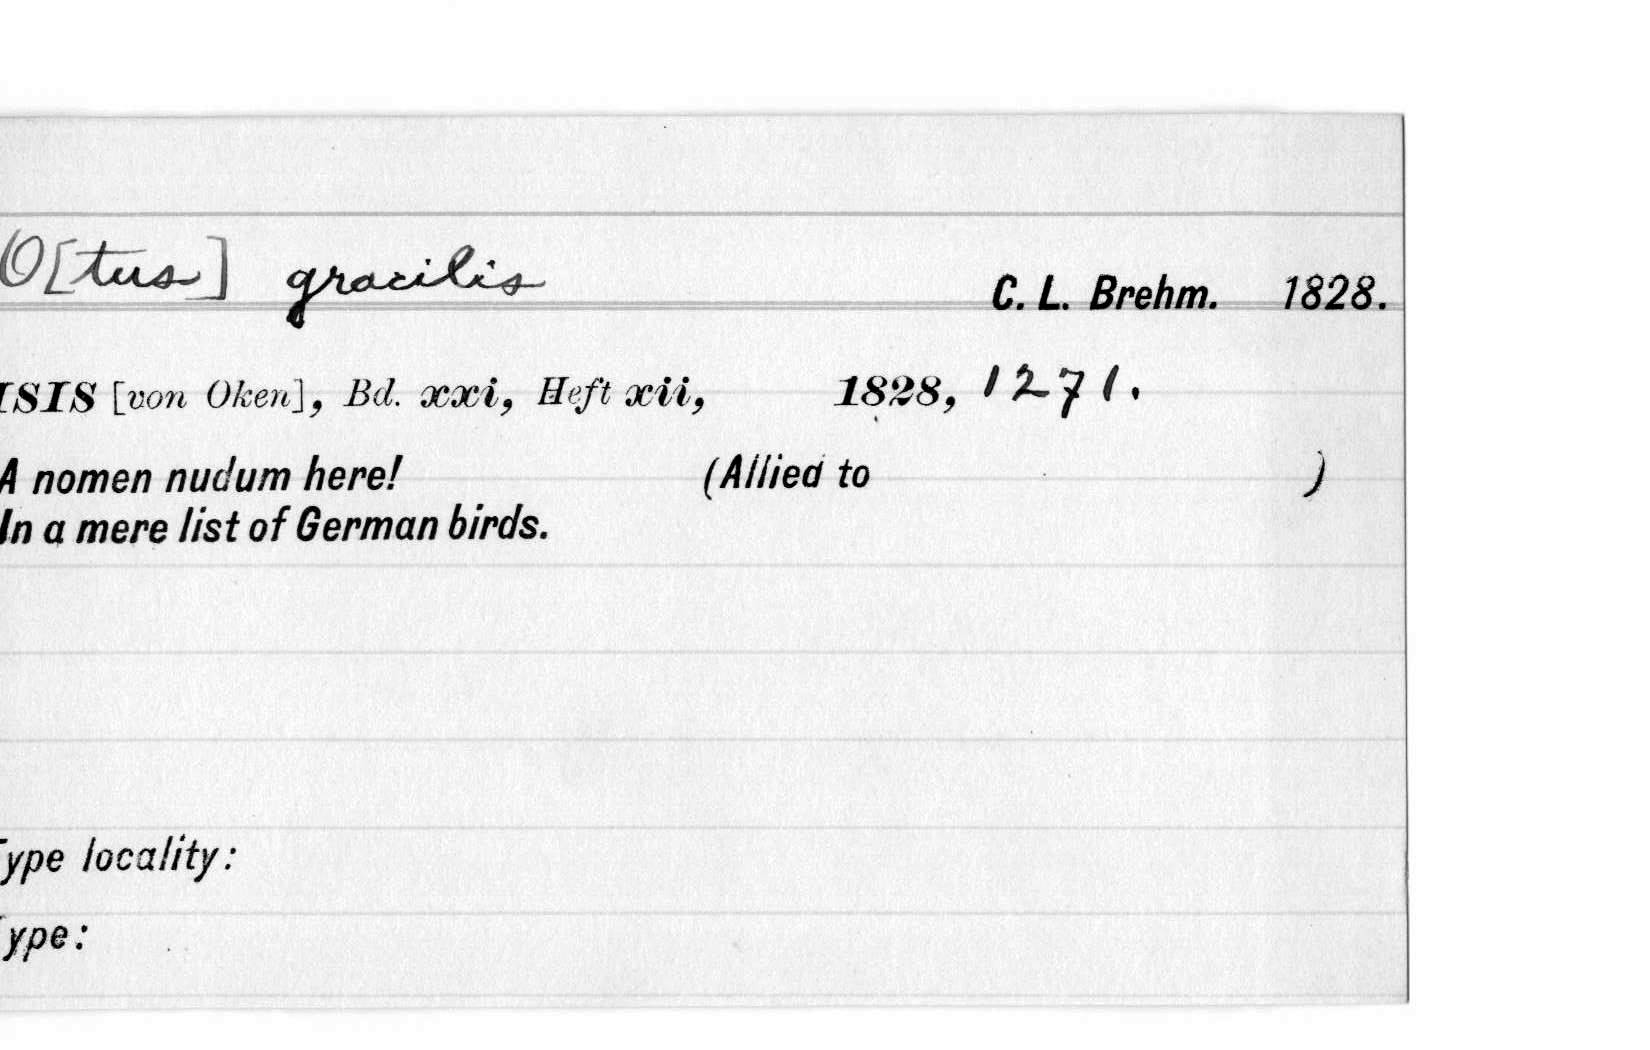 O[tus] gracilis
C. L. Brehm. 1828.
ISIS [von Oken], Bd. xxi, Heft xii, 1828, 1271.
A nomen nudum here! (Allied to )
In a mere list of German birds.
Type locality:
Type: